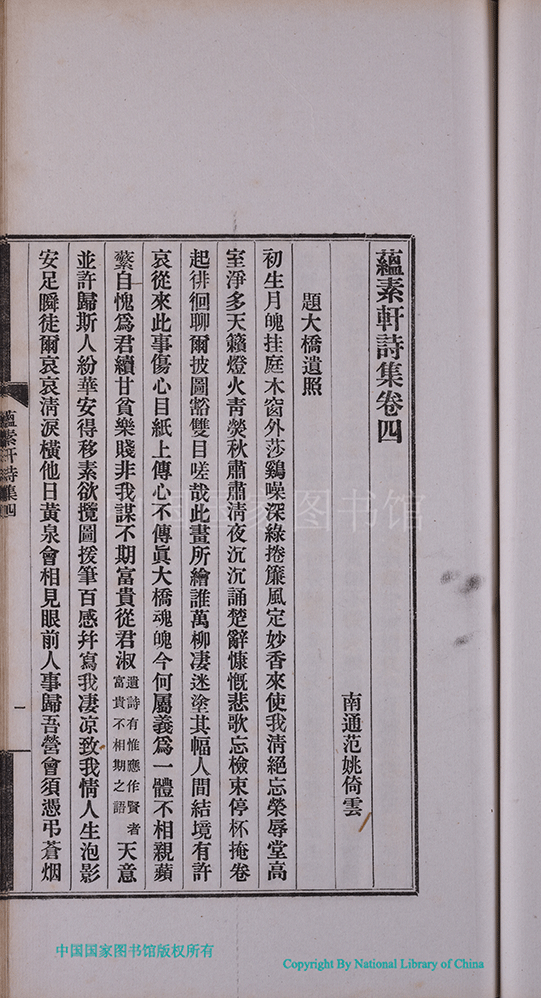 蘊素軒詩集卷四
南通范姚倚雲
題大橋遺照
初生月魄挂庭木窗外莎鷄噪深綠捲簾風定妙香來使我清絕忘榮辱堂高
室淨多天籟燈火青熒秋肅肅清夜沉沉誦楚辭慷慨悲歌忘檢束停杯掩卷
起徘徊聊爾披圖豁雙目嗟哉此畫所繪誰萬柳淒迷塗其幅人間結境有許
哀從來此事傷心目紙上傳心不傳眞大橋魂魄今何屬義爲一體不相親蘋
蘩自愧爲君續甘貧樂賤非我謀不期富貴從君淑遺詩有惟應作賢者富貴不相期之語天意
並許歸斯人紛華安得移素欲攬圖援筆百感幷寫我淒凉致我情人生泡影
安足瞬徒爾哀哀清淚橫他日黃泉會相見眼前人事歸吾營會須憑弔蒼烟
蘊素軒詩集四
一
中国国家图书馆
中国国家图书馆版权所有
Copyright By National Library of China